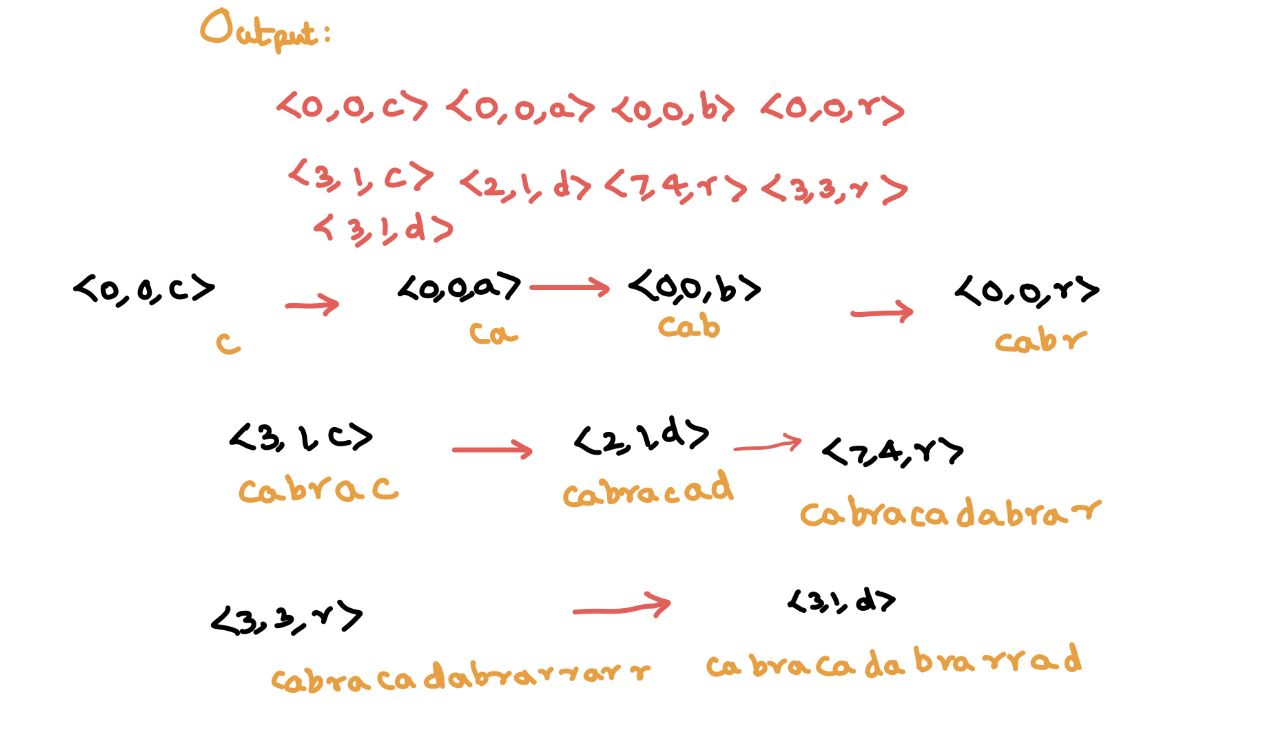 Output:
<0,0,c> <0,0,a> <0,0,b> <0,0,r>
<3,1,c> <2,1,d> <7,4,r> <3,3,r>
<3,1,d>
<0,0,c> → <0,0,a> → <0,0,b> → <0,0,r>
c ca cab cabr
<3,1,c> → <2,1,d> → <7,4,r>
cabrac cabracad cabracadabrar
<3,3,r> → <3,1,d>
cabracadabrarrarr cabracadabrarrad